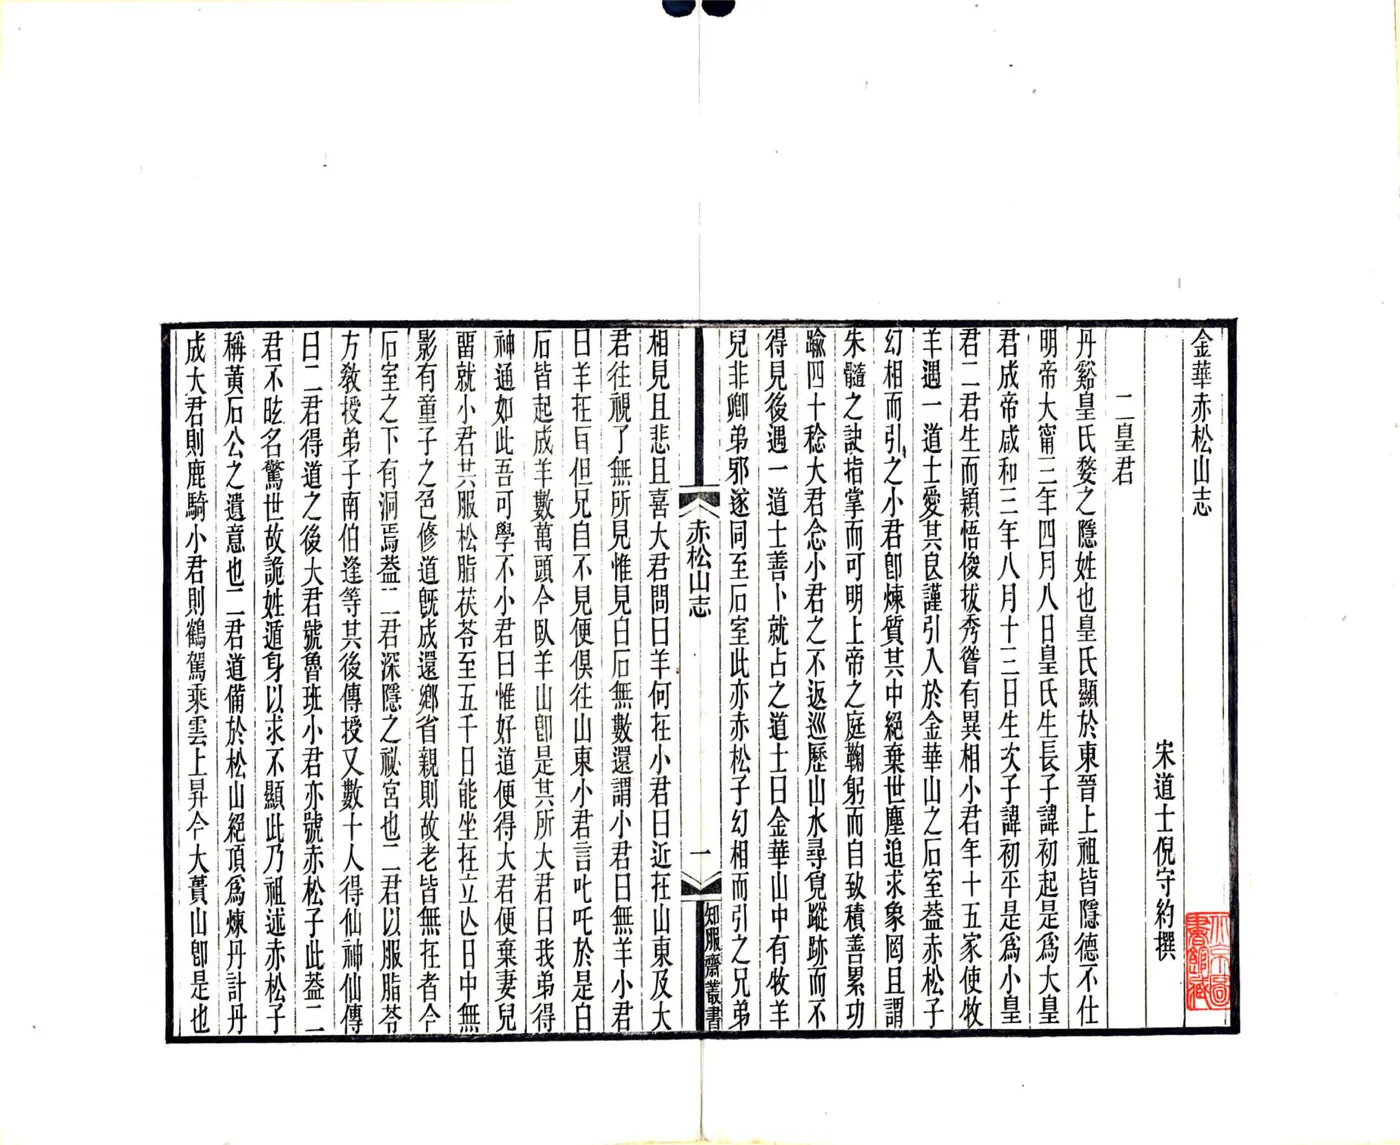 金華赤松山志
宋道士倪守約撰
二皇君
丹谿皇氏婺之隱姓也皇氏顯於東晉上祖皆隱德不仕
明帝大甯三年四月八日皇氏生長子諱初起是爲大皇
君成帝咸和三年八月十三日生次子諱初平是爲小皇
君二君生而穎悟俊拔秀聳有異相小君年十五家使牧
羊遇一道士愛其良謹引入於金華山之石室葢赤松子
幻相而引之小君卽煉質其中絕棄世塵追求象罔且謂
朱髓之訣指掌而可明上帝之庭鞠躬而自致積善累功
踰四十稔大君念小君之不返巡歷山水尋覓蹤跡而不
得見後遇一道士善卜就占之道士曰金華山中有牧羊
兒非卿弟邪遂同至石室此亦赤松子幻相而引之兄弟
赤松山志
一
知服齋叢書
相見且悲且喜大君問曰羊何在小君曰近在山東及大
君往視了無所見惟見白石無數還謂小君曰無羊小君
曰羊在耳但兄自不見便俱往山東小君言叱吒於是白
石皆起成羊數萬頭今臥羊山卽是其所大君曰我弟得
神通如此吾可學不小君曰惟好道便得大君便棄妻兒
畱就小君共服松脂茯苓至五千日能坐在立亾日中無
影有童子之色修道旣成還鄉省親則故老皆無在者今
石室之下有洞焉葢二君深隱之祕宮也二君以服脂苓
方敎授弟子南伯逢等其後傳授又數十人得仙神仙傳
曰二君得道之後大君號魯班小君亦號赤松子此葢二
君不眩名驚世故詭姓遁身以求不顯此乃祖述赤松子
稱黃石公之遺意也二君道備於松山絕頂爲煉丹計丹
成大君則鹿騎小君則鶴駕乘雲上昇今大蕢山卽是也